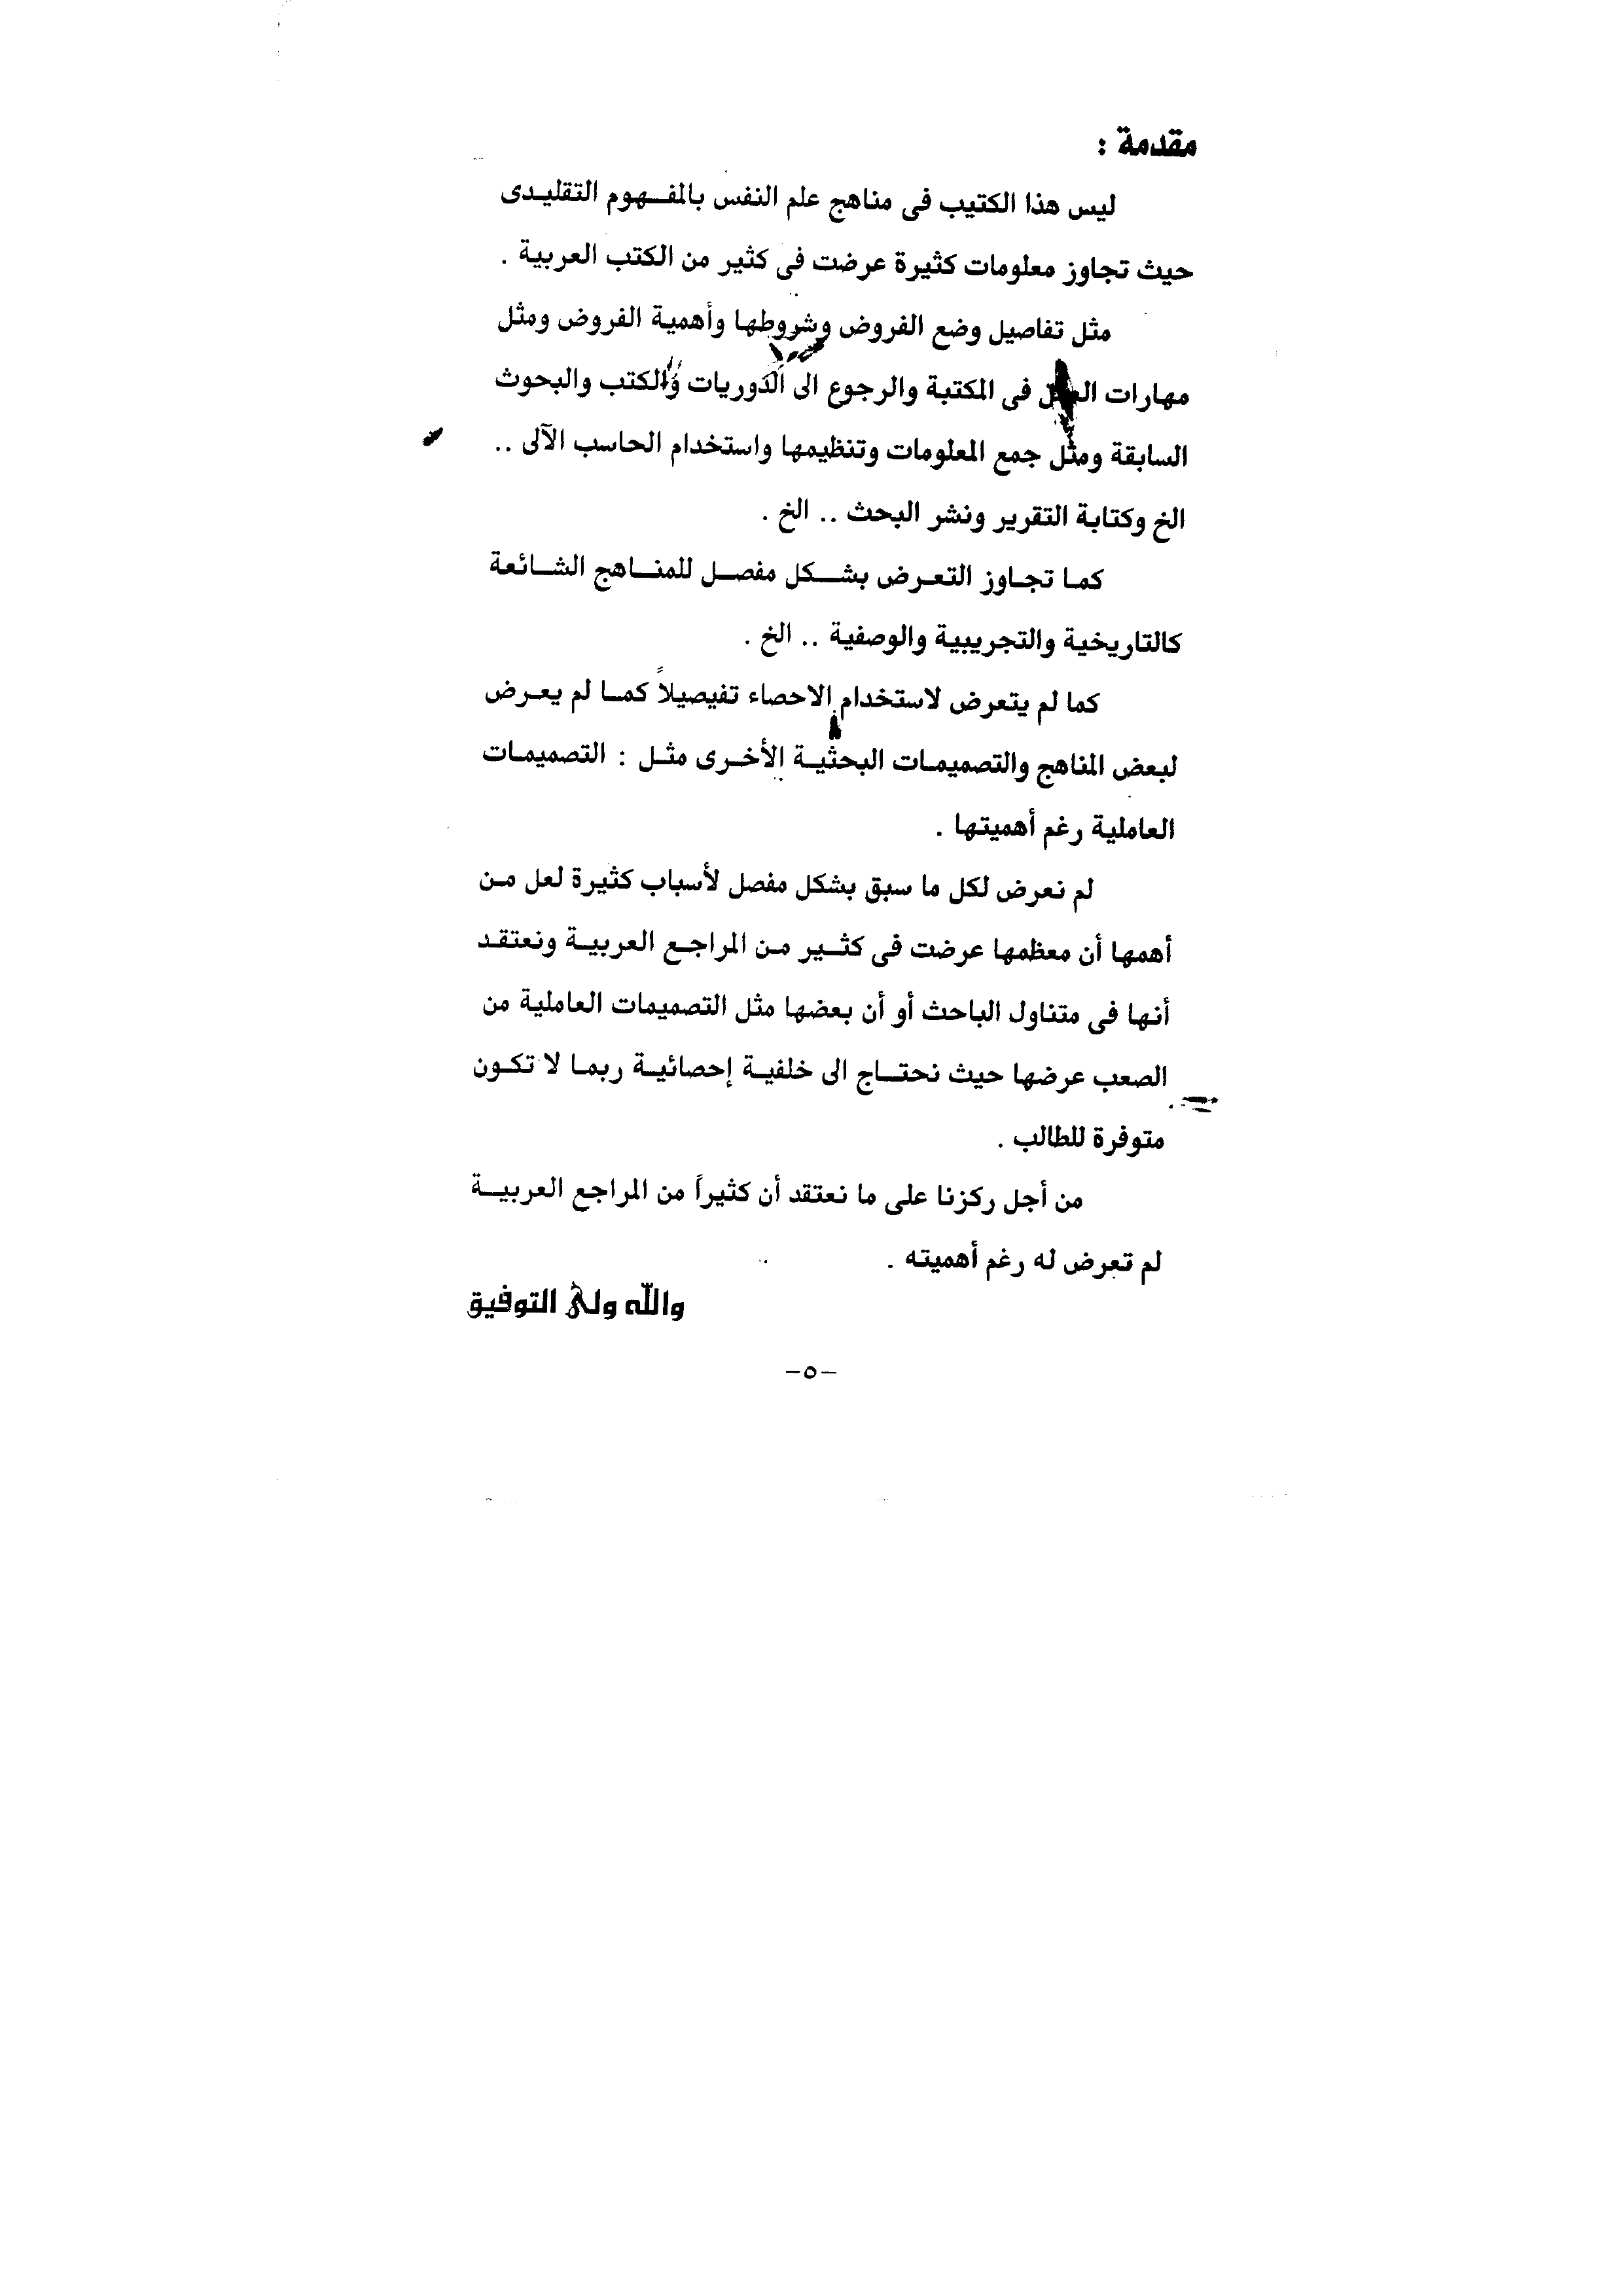 مقدمة :
ليس هذا الكتيب فى مناهج علم النفس بالمفهوم التقليدى
حيث تجاوز معلومات كثيرة عرضت فى كثير من الكتب العربية .
مثل تفاصيل وضع الفروض وشروطها وأهمية الفروض ومثل
مهارات فى المكتبة والرجوع الى الدوريات والكتب والبحوث
السابقة ومثل جمع المعلومات وتنظيمها واستخدام الحاسب الآلى ..
الخ وكتابة التقرير ونشر البحث .. الخ .
كما تجاوز التعرض بشكل مفصل للمناهج الشائعة
كالتاريخية والتجريبية والوصفية .. الخ .
كما لم يتعرض لاستخدام الاحصاء تفيصيلاً كما لم يعرض
لبعض المناهج والتصميمات البحثية الأخرى مثل : التصميمات
العاملية رغم أهميتها .
لم نعرض لكل ما سبق بشكل مفصل لأسباب كثيرة لعل من
أهمها أن معظمها عرضت فى كثير من المراجع العربية ونعتقد
أنها فى متناول الباحث أو أن بعضها مثل التصميمات العاملية من
الصعب عرضها حيث نحتاج الى خلفية إحصائية ربما لا تكون
متوفرة للطالب .
من أجل ركزنا على ما نعتقد أن كثيراً من المراجع العربية
لم تعرض له رغم أهميته .
والله ولى التوفيق
-٥-